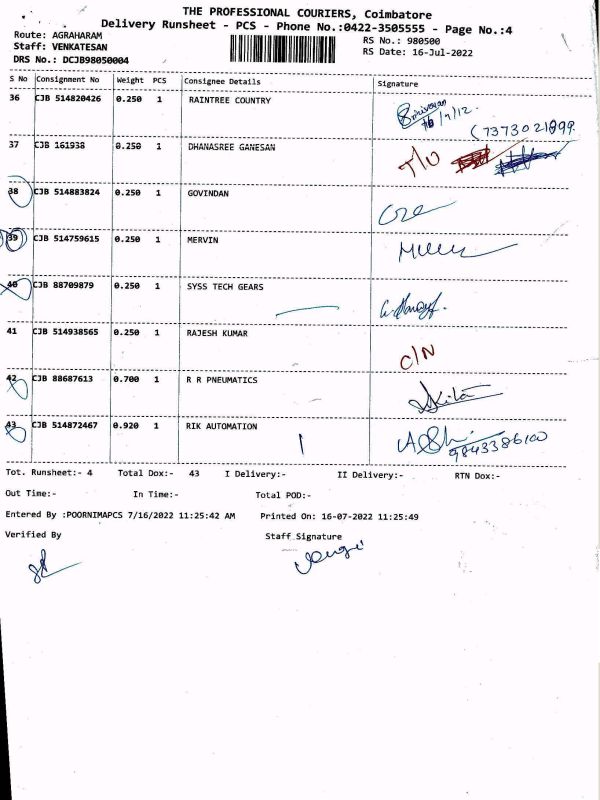 THE PROFESSIONAL COURIERS, Coimbatore
Delivery Runsheet - PCS - Phone No.:0422-3505555 - Page No.:4
Route: AGRAHARAM
RS No.: 980500
Staff: VENKATESAN
RS Date: 16-Jul-2022
DRS No.: DCJB98050004
S No Consignment No Weight PCS Consignee Details Signature
36 CJB 514820426 0.250 1 RAINTREE COUNTRY
(7373021899
37 CJB 161938 0.250 1 DHANASREE GANESAN T/U
38 CJB 514883824 0.250 1 GOVINDAN
39 CJB 514759615 0.250 1 MERVIN
40 CJB 88709879 0.250 1 SYSS TECH GEARS
41 CJB 514938565 0.250 1 RAJESH KUMAR C/N
42 CJB 88687613 0.700 1 R R PNEUMATICS
43 CJB 514872467 0.920 1 RIK AUTOMATION
9843386100
Tot. Runsheet:- 4 Total Dox:- 43 I Delivery:- II Delivery:- RTN Dox:-
Out Time:- In Time:- Total POD:-
Entered By :POORNIMAPCS 7/16/2022 11:25:42 AM Printed On: 16-07-2022 11:25:49
Verified By Staff Signature